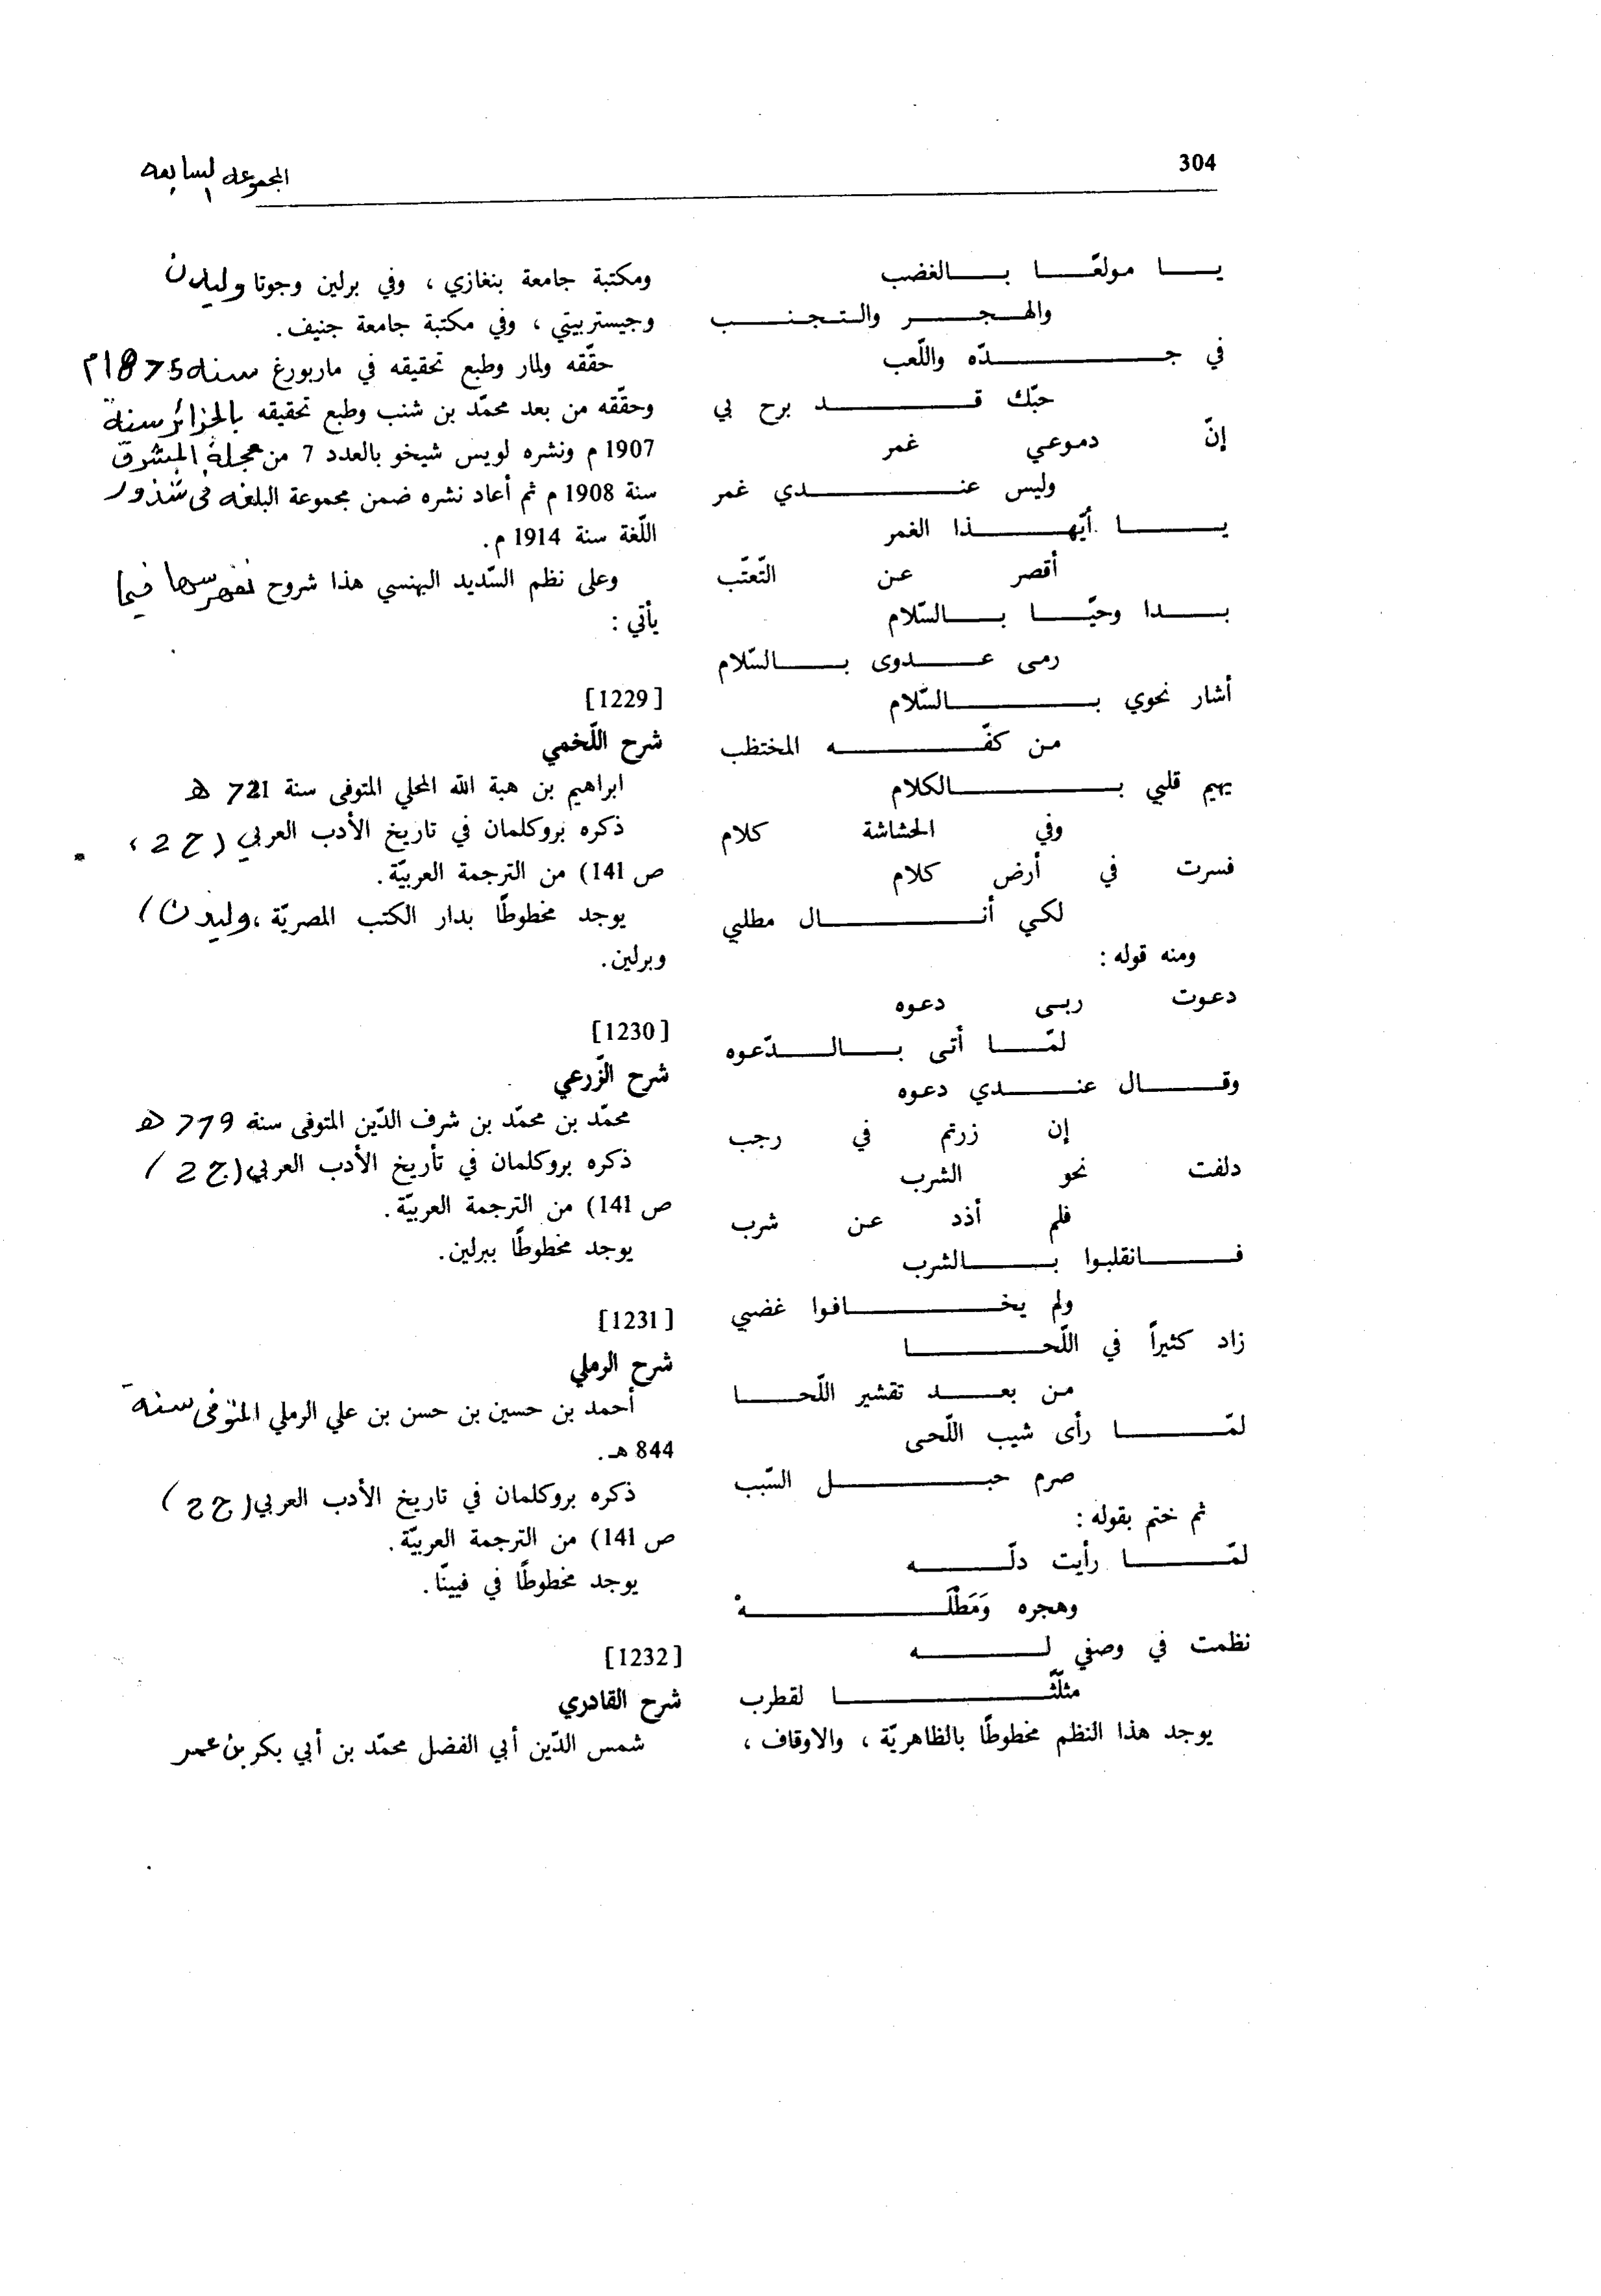 304
المجموعة السابعة
يا مولعًا بالغضب
والهجر والتجنب
في جدّه واللّعب
حبّك قد برح بي
إنّ دموعي غمر
وليس عندي غمر
يا أيّهذا الغمر
أقصر عن التّعتّب
بدا وحيّا بالسّلام
رمى عدوى بالسّلام
أشار نحوي بالسّلام
من كفّه المختظب
يهيم قلبي بالكلام
وفي الحشاشة كلام
فسرت في أرض كلام
لكي أنال مطلبي
ومنه قوله :
دعوت ربى دعوه
لمّا أتى بالدّعوه
وقال عندي دعوه
إن زرتم في رجب
دلفت نحو الشرب
فلم أذد عن شرب
فانقلبوا بالشرب
ولم يخافوا غضبي
زاد كثيراً في اللّحا
من بعد تقشير اللّحا
لمّا رأى شيب اللّحى
صرم حبل السّبب
ثم ختم بقوله :
لمّا رأيت دلّه
وهجره وَمَطْلَهْ
نظمت في وصفي له
مثلّثا لقطرب
يوجد هذا النظم مخطوطًا بالظاهريّة ، والاوقاف ،
ومكتبة جامعة بنغازي ، وفي برلين وجوتا وليدن
وجيستربيتي ، وفي مكتبة جامعة جنيف.
حقّقه ولمار وطبع تحقيقه في ماربورغ سنة 1875م
وحقّقه من بعد محمّد بن شنب وطبع تحقيقه بالجزائر سنة
1907 م ونشره لويس شيخو بالعدد 7 من مجلة المشرق
سنة 1908 م ثم أعاد نشره ضمن مجموعة البلغة في شذور
اللّغة سنة 1914 م.
وعلى نظم السّديد البهنسي هذا شروح نفهرسها فيما
يأتي :
[1229]
شرح اللّخمي
ابراهيم بن هبة الله المحلي المتوفى سنة 721 هـ
ذكره بروكلمان في تاريخ الأدب العربي (ج 2 ،
ص 141) من الترجمة العربيّة.
يوجد مخطوطًا بدار الكتب المصريّة ، وليدن ،
وبرلين.
[1230]
شرح الزّرعي
محمّد بن محمّد بن شرف الدّين المتوفى سنة 779 هـ
ذكره بروكلمان في تأريخ الأدب العربي (ج 2 /
ص 141) من الترجمة العربيّة.
يوجد مخطوطًا ببرلين.
[1231]
شرح الرملي
أحمد بن حسين بن حسن بن علي الرملي المتوفى سنة
844 هـ.
ذكره بروكلمان في تاريخ الأدب العربي (ج 2 /
ص 141) من الترجمة العربيّة.
يوجد مخطوطًا في فيينّا.
[1232]
شرح القادري
شمس الدّين أبي الفضل محمّد بن أبي بكر بن عمر